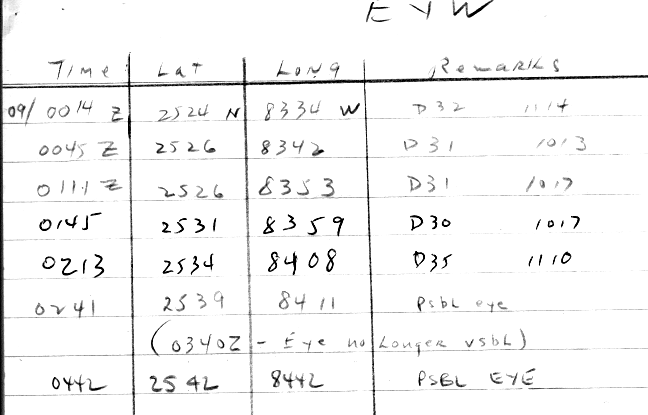 EYW
Time Lat Long Remarks
09/0014 Z 2524 N 8334 W D32 1114
0045 Z 2526 8342 D31 1013
0111 Z 2526 8353 D31 1017
0145 2531 8359 D30 1017
0213 2534 8408 D35 1110
0241 2539 8411 Psbl eye
(0340Z - Eye no Longer vsbl)
0442 2542 8442 PSBL EYE